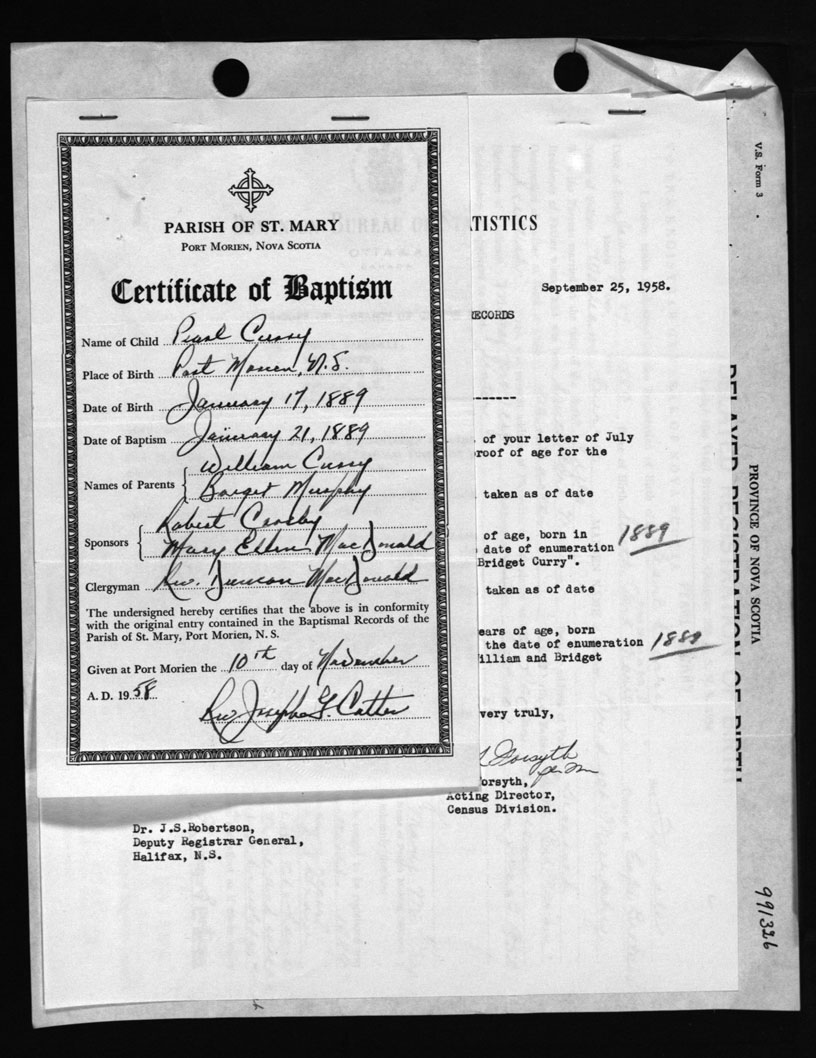 PARISH OF ST. MARY
PORT MORIEN, NOVA SCOTIA
Certificate of Baptism
Name of Child Pearl Curry
Place of Birth Port Morien, N.S.
Date of Birth January 17, 1889
Date of Baptism January 21, 1889
Names of Parents William Curry
Barget Murphy
Sponsors Robert Crosby
Mary Ellen MacDonald
Clergyman Rev. Duncan MacDonald
The undersigned hereby certifies that the above is in conformity
with the original entry contained in the Baptismal Records of the
Parish of St. Mary, Port Morien, N. S.
Given at Port Morien the 10th day of November
A. D. 1958
Rev Joseph G. Cotter
BUREAU OF
TISTICS
OTTAWA
September 25, 1958.
ECORDS
of your letter of July
roof of age for the
taken as of date
of age, born in 1889
date of enumeration
Bridget Curry".
taken as of date
ears of age, born
the date of enumeration 1889
illiam and Bridget
very truly,
Forsyth
orsyth,
Acting Director,
Census Division.
Dr. J.S.Robertson,
Deputy Registrar General,
Halifax, N.S.
V.S. Form 3
PROVINCE OF NOVA SCOTIA
DELAYED REGISTRATION OF BIRTH
991326